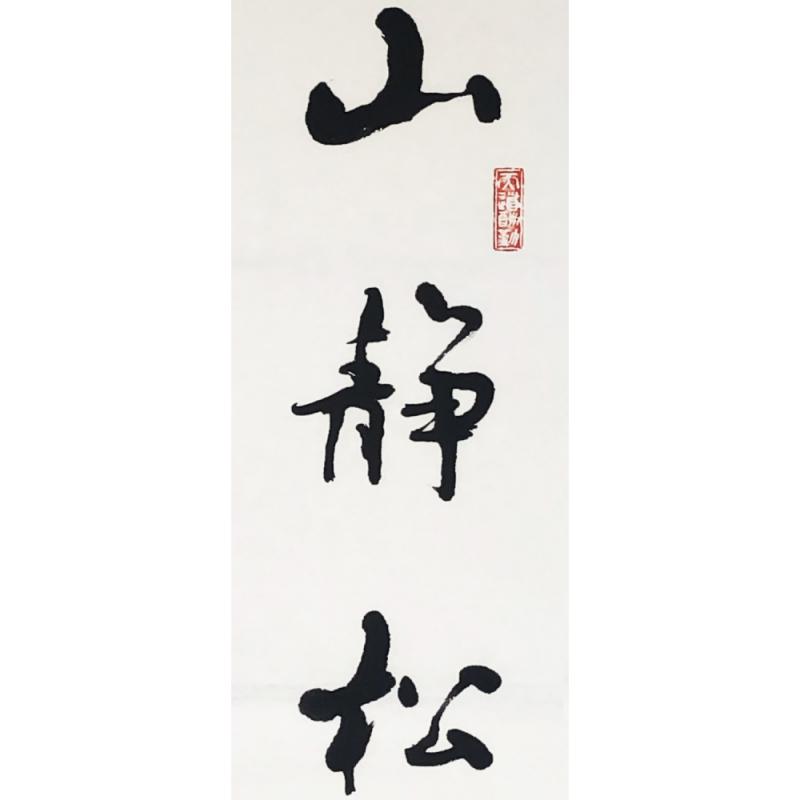 山静松
天道酬勤